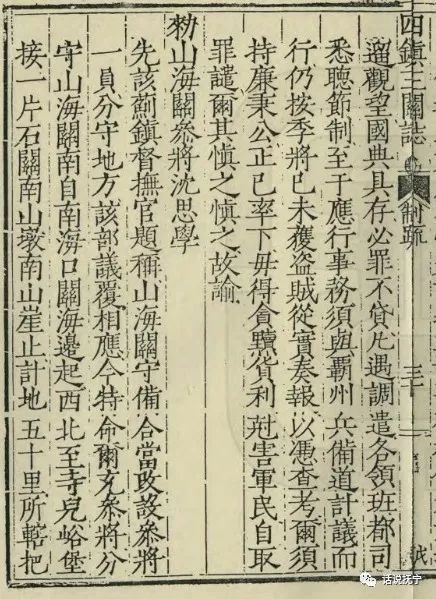 四鎮三關誌 制疏 三十
遛觀望國典具存必罪不貸凡遇調遣各領班都司
悉聽節制至于應行事務須與霸州兵備道計議而
行仍按季將已未獲盜賊從實奏報以憑查考爾須
持廉秉公正已率下毋得貪黷貨利尅害軍民自取
罪譴爾其慎之慎之故諭
勑山海關叅將沈思學
先該薊鎮督撫官題稱山海關守備合當改設叅將
一員分守地方該部議覆相應今特命爾充叅將分
守山海關南自南海口關海邊起西北至寺兒峪堡
接一片石關南山墩南山崖止計地五十里所轄把
话说抚宁